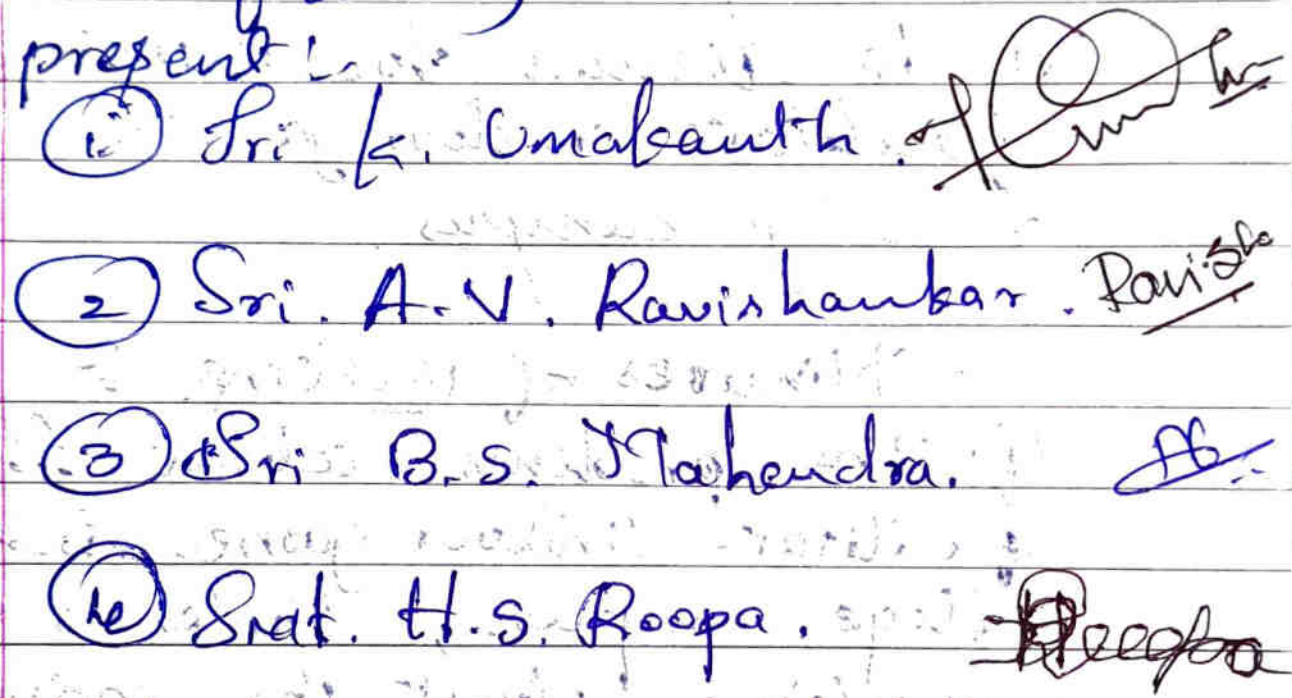 present :-
1. Sri K. Umakanth.
2 Sri. A.V. Ravishankar. Ravish
3 Sri B.S. Mahendra.
4 Smt. H.S. Roopa. Roopa